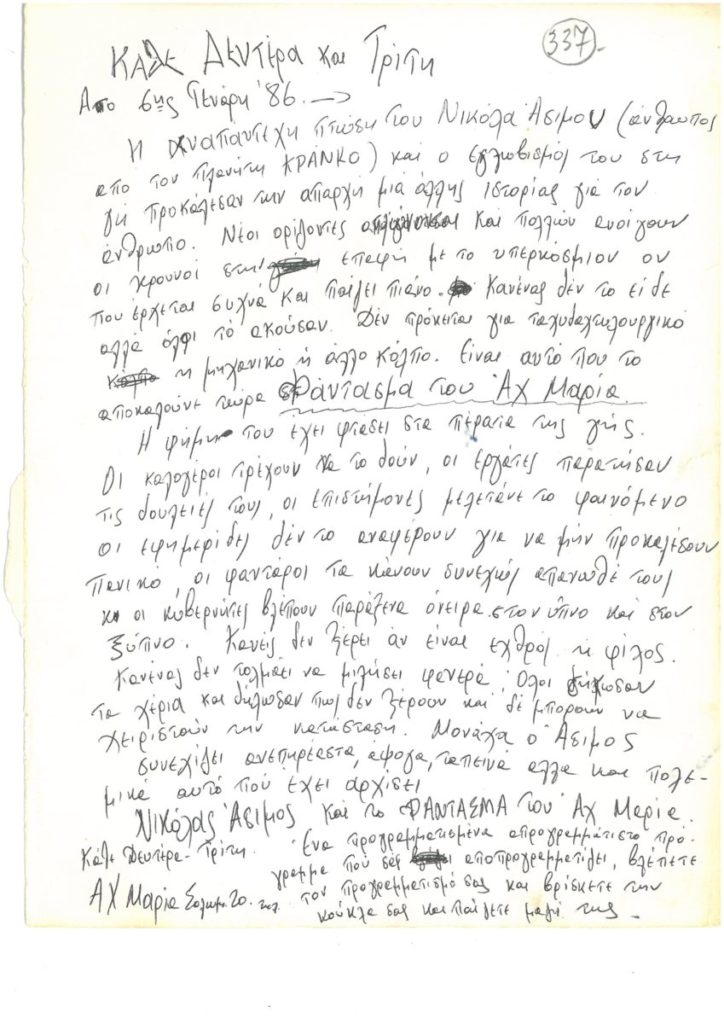 Κάθε Δευτέρα και Τρίτη
337
Απο 6ης Γενάρη '86 →
Η αναπάντεχη πτώση του Νικόλα Άσιμου (άνθρωπος
απο τον πλανήτη ΚΡΑΝΚΟ) και ο εγλωβισμός του στη
γη προκάλεσαν την απαρχή μια άλλης ιστορίας για τον
άνθρωπο. Νέοι ορίζοντες και πολλών ανοίγουν
οι κρουνοί στην επαφή με το υπερκόσμιον ον
που έρχεται συχνά και παίζει πιάνο. Κανένας δέν το είδε
αλλά όλοι τό ακούσαν. Δέν πρόκειται για ταχυδαχτυλουργικό
ή μηχανικό ή άλλο κόλπο. Είναι αυτό που το
αποκαλούνε τώρα Φάντασμα του Άχ Μαρία.
Η φήμη του έχει φτάσει στα πέρατα της γής.
Οι καλόγεροι τρέχουν να το δούν, οι εργάτες παρατήσαν
τις δουλειές τους, οι επιστήμονες μελετάνε το φαινόμενο
οι εφημερίδες δέν το αναφέρουν για να μήν προκαλέσουν
πανικό, οι φαντάροι τα κάνουν συνεχώς απανωθέ τους
κι οι κυβερνήτες βλέπουν παράξενα όνειρα στον ύπνο και στον
ξύπνο. Κανείς δεν ξέρει άν είναι εχθρός ή φίλος.
Κανένας δεν τολμάει να μιλήσει φανερά. Όλοι σήκωσαν
τα χέρια και δήλωσαν πως δεν ξέρουν και δέ μπορούν να
χειριστούν την κατάσταση. Μονάχα ο Άσιμος
συνεχίζει ανεπηρέαστα, άψογα, ταπεινά αλλα και πολε-
μικά αυτό πού έχει αρχίσει
Νικόλας Άσιμος και το ΦΑΝΤΑΣΜΑ του Άχ Μαρία.
Κάθε Δευτέρα - Τρίτη. Ένα προγραμματισμένα απρογραμμάτιστο πρό-
γραμμα πού σάς αποπρογραμματίζει, βλέπετε
ΑΧ Μαρία Σολωμ. 20. τον προγραμματισμό σας και βρίσκετε την
κούκλα σας και παίζετε μαζί της -